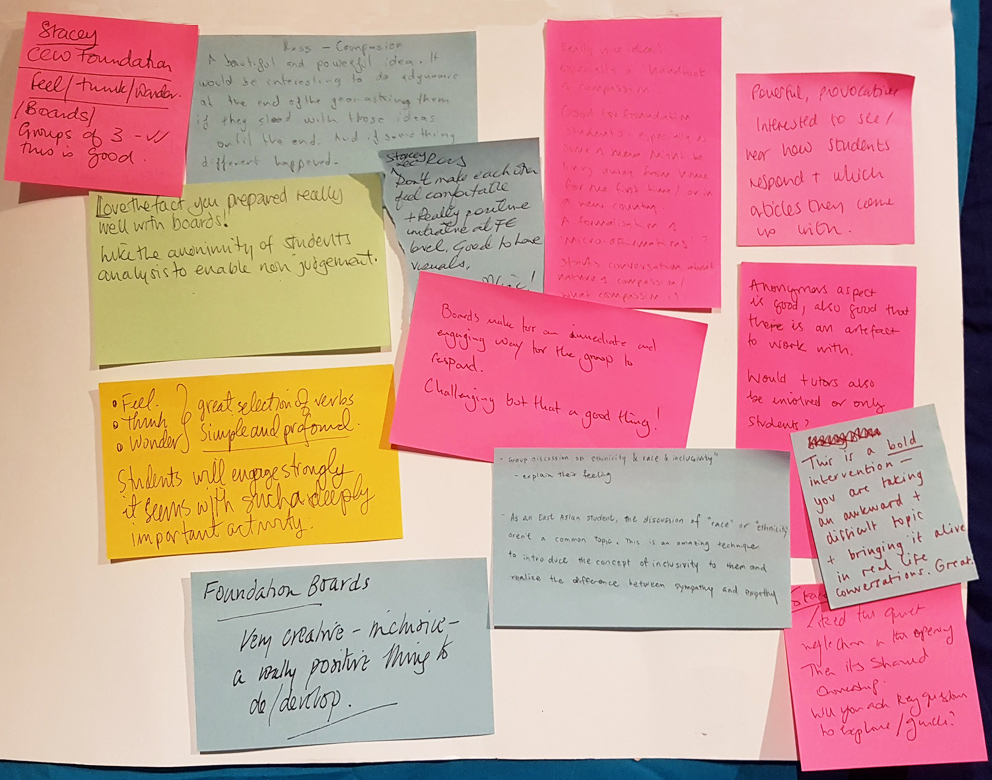 Stacey
CCW Foundation
Feel/think/wonder.
/Boards/
Groups of 3 -
this is good.
Ross - Compassion
A beautiful and powerful idea. It
would be interesting to do
at the end of the year asking them
if they stood with those ideas
until the end. And if something
different happened.
Love the fact you prepared really
well with boards!
Like the anonimity of students
analysis to enable non judgement.
Stacey
Don't make each other
feel comfortable
+ Really positive
initiative at FE
level. Good to have
visuals.
Really nice idea!
especially a handbook
of compassion
Good for foundation
students especially as
some of them might be
living away from home
for the first time / or in
a new country
A formalisation of
microaffirmations?
Starts conversation about
nature of compassion/
what compassion is?
Powerful, provocative
Interested to see/
hear how students
respond + which
articles they come
up with.
Boards make for an immediate and
engaging way for the group to
respond.
Challenging but that a good thing!
Anonymous aspect
is good, also good that
there is an artefact
to work with.
Would tutors also
be involved or only
students?
• Feel.
• Think
• Wonder
great selection of verbs
simple and profound.
Students will engage strongly
it seems with such a deeply
important activity.
- Group discussion on ethnicity & race & inclusivity"
- explain their feeling
- As an East Asian student, the discussion of "race" or "ethnicity
aren't a common topic. This is an amazing technique
to introduce the concept of inclusivity to them and
realise the difference between sympathy and empathy
This is a bold
intervention -
you are taking
an awkward +
difficult topic
+ bringing it alive
in real life
conversations. Great.
Foundation Boards
Very creative - inclusive -
a really positive thing to
do/develop.
Liked the quiet
reflection in the opening
Then its shared
ownership.
Will you ask key questions
to explore / guide?